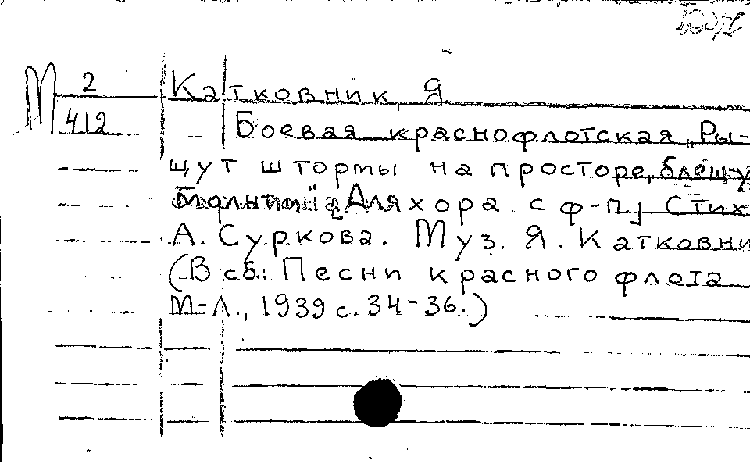 М 2 Катковник Я
412 Боевая краснофлотская „Ры-
щут штормы на просторе, блещу
молнии" [Для хора с ф-п.] Стих
А. Суркова. Муз. Я. Катковни
(В сб.: Песни красного флота
М-Л., 1939 с. 34-36.)